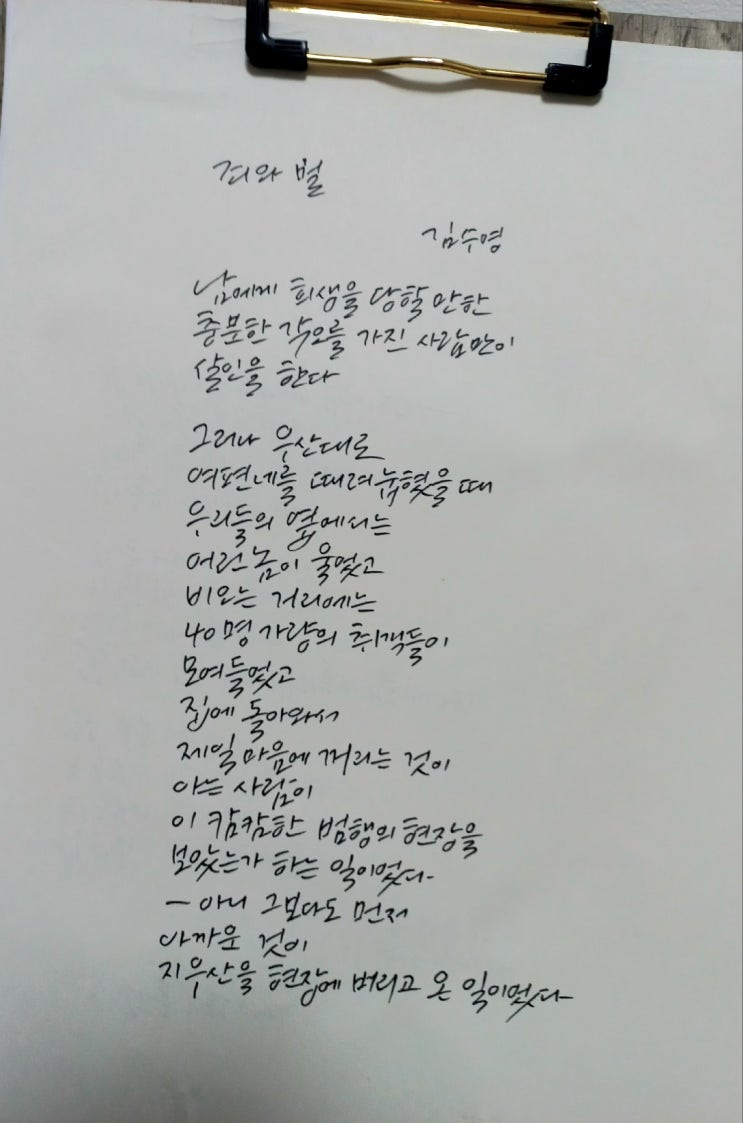 죄와 벌
김수영
남에게 희생을 당할 만한
충분한 각오를 가진 사람만이
살인을 한다
그러나 우산대로
여편네를 때려눕혔을 때
우리들의 옆에서는
어린놈이 울었고
비오는 거리에는
40명 가량의 취객들이
모여들었고
집에 돌아와서
제일 마음에 꺼리는 것이
아는 사람이
이 캄캄한 범행의 현장을
보았는가 하는 일이었다
— 아니 그보다도 먼저
아까운 것이
지우산을 현장에 버리고 온 일이었다